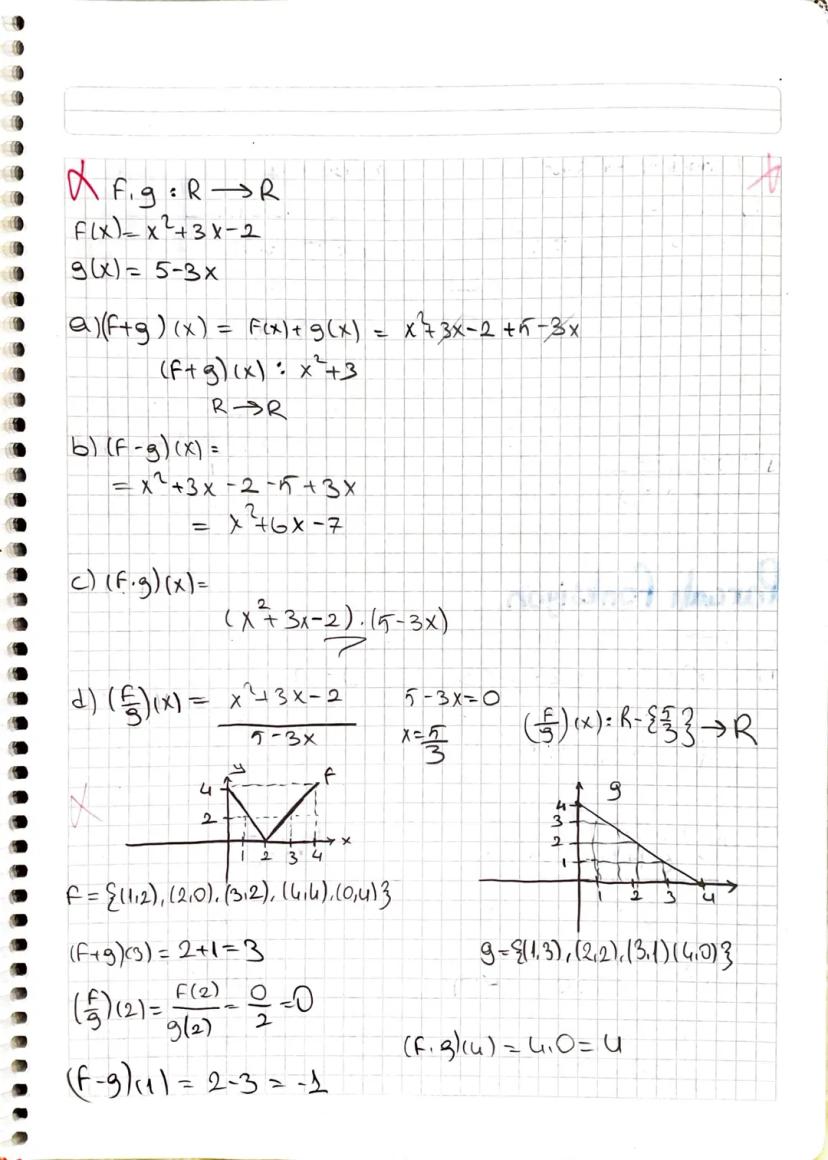 f,g : R → R
f(x) = x²+3x-2
g(x) = 5-3x
a)(f+g)(x) = f(x)+g(x) = x²+3x-2+5-3x
(f+g)(x) : x²+3
R → R
b) (f-g)(x) =
= x²+3x-2-5+3x
= x²+6x-7
c) (f.g)(x)=
(x²+3x-2).(5-3x)
d) (f/g)(x) = x²+3x-2 / 5-3x
5-3x=0
x=5/3
(f/g)(x): R-{5/3} → R
y
f
4
2
1 2 3 4 x
g
4
3
2
1
1 2 3 4
f={(1,2),(2,0),(3,2),(4,4),(0,4)}
g={(1,3),(2,2),(3,1)(4,0)}
(f+g)(3) = 2+1=3
(f/g)(2) = f(2)/g(2) = 0/2 = 0
(f.g)(4) = 4.0=4
(f-g)(1) = 2-3 = -1